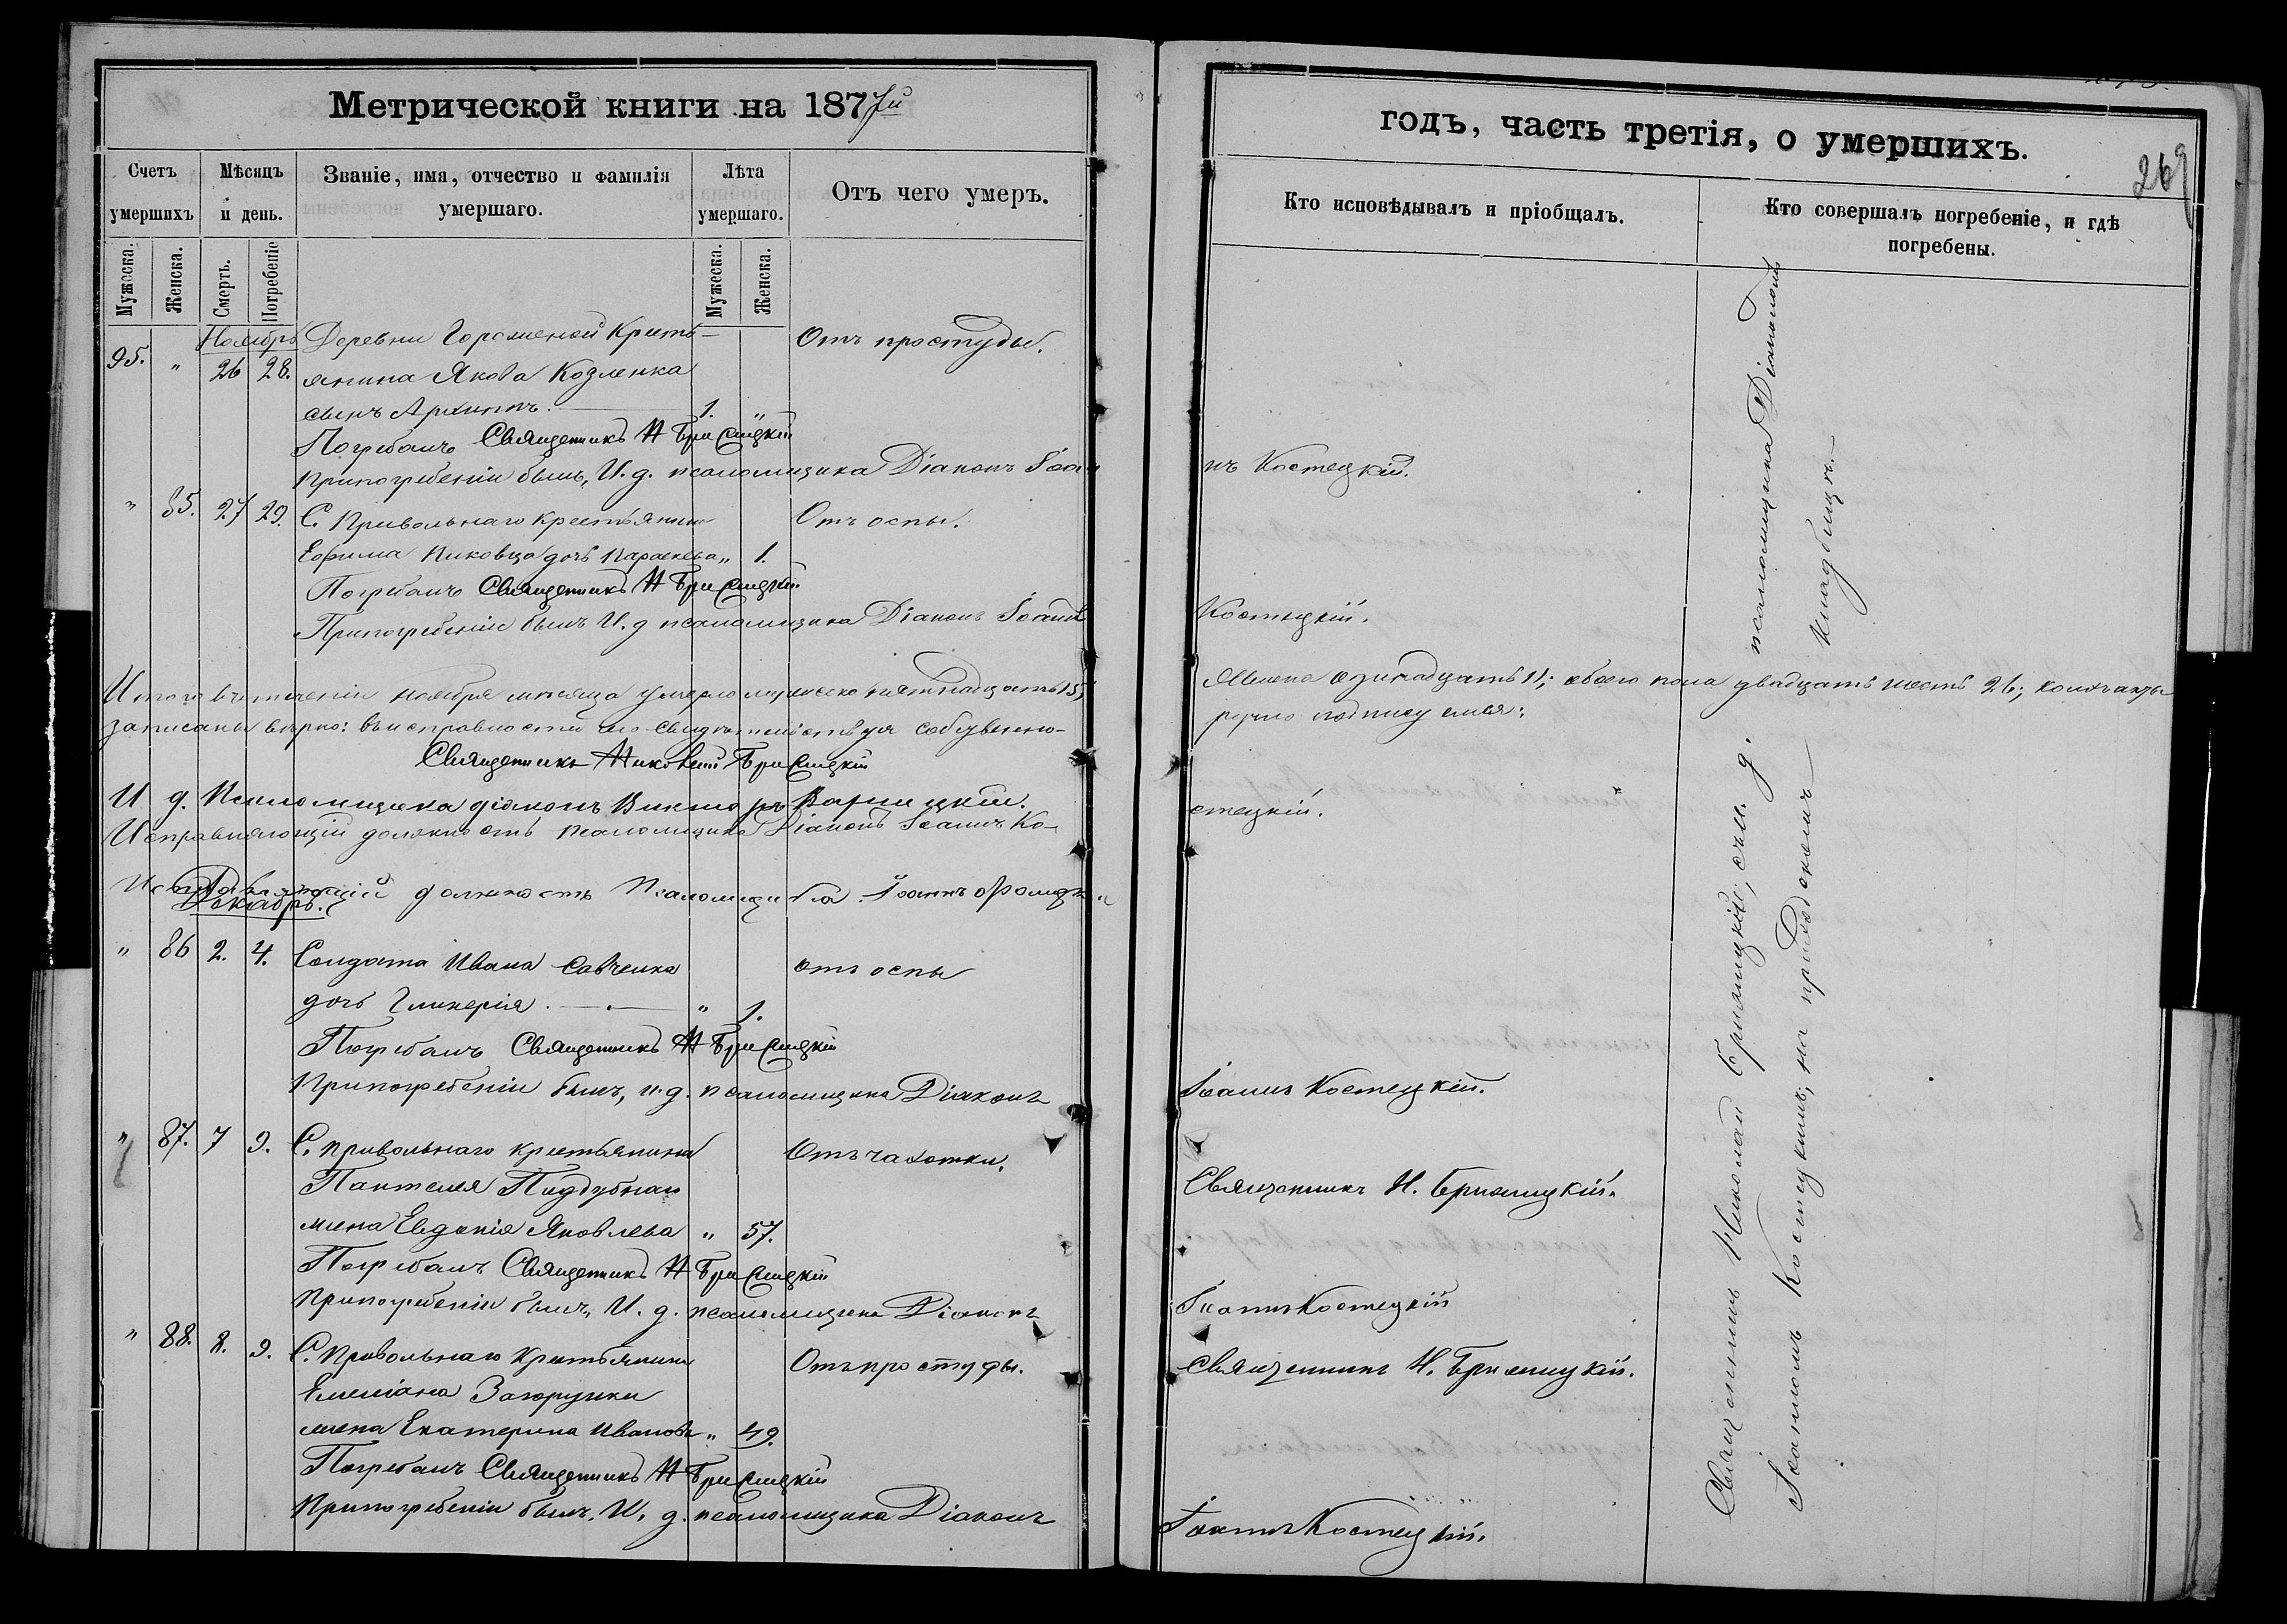 Метрической книги на 1877й
годъ, часть третія, о умершихъ.
269
Счетъ умершихъ
Мѣсяцъ и день.
Званіе, имя, отчество и фамилія умершаго.
Лѣта умершаго.
Отъ чего умеръ.
Кто исповѣдывалъ и пріобщалъ.
Кто совершалъ погребеніе, и гдѣ погребены.
Мужеска. Женска. Смерть. Погребеніе Мужеска. Женска.
Ноябрь
95. " 26 28. Деревни Крестьянина Якова Козленка
сынъ Архиппъ. 1. " Отъ простуды.
Погребалъ Священникъ Н Брилицкій
При погребеніи былъ, И. д. псаломщика Діаконъ Іоаннъ Костецкій.
" 85. 27 29. С. Привольнаго крестьянина
Ефима дочь Параскева " 1. Отъ оспы.
Погребалъ Священникъ Н Брилицкій
При погребеніи былъ И. д псаломщика Діаконъ Іоаннъ Костецкій.
Итого въ теченіи ноября мѣсяца умерло мужеско пятнадцать 15, женска одинадцать 11; обоего пола двадцать шесть 26;
записаны вѣрно: въ исправности чего свидѣтельствуя собственноручно подписуемся:
Священникъ Николай Брилицкій
И д. Псаломщика діаконъ Викторъ
Исправляющій должность псаломщика Діаконъ Іоаннъ Костецкій.
Исправляющій должность Псаломщика Іоаннъ
Декабрь.
" 86 2. 4. Солдата Ивана Савченка отъ оспы
дочь Гликерія. " 1.
Погребалъ Священникъ Н Брилицкій
При погребеніи былъ, и. д. псаломщика Діаконъ Іоаннъ Костецкій.
" 87. 7 9. С. Привольнаго крестьянина Отъ чахотки.
Пантелея Поддубнаго Священникъ Н. Брилицкій.
жена Евдокія Яковлева " 57.
Погребалъ Священникъ Н Брилицкій
При погребеніи былъ, И. д. псаломщика Діаконъ Іоаннъ Костецкій
" 88. 8. 9. С. Привольнаго крестьянина Отъ простуды.
Емеліана Священникъ Н. Брилицкій.
жена Екатерина Иванова " 49.
Погребалъ Священникъ Н Брилицкій
При погребеніи былъ, И. д. псаломщика Діаконъ Іоаннъ Костецкій.
Священникъ Николай Брилицкій, съ и. д. псаломщика Діакономъ
Іоанномъ Костецкимъ, на приходскомъ кладбищѣ.